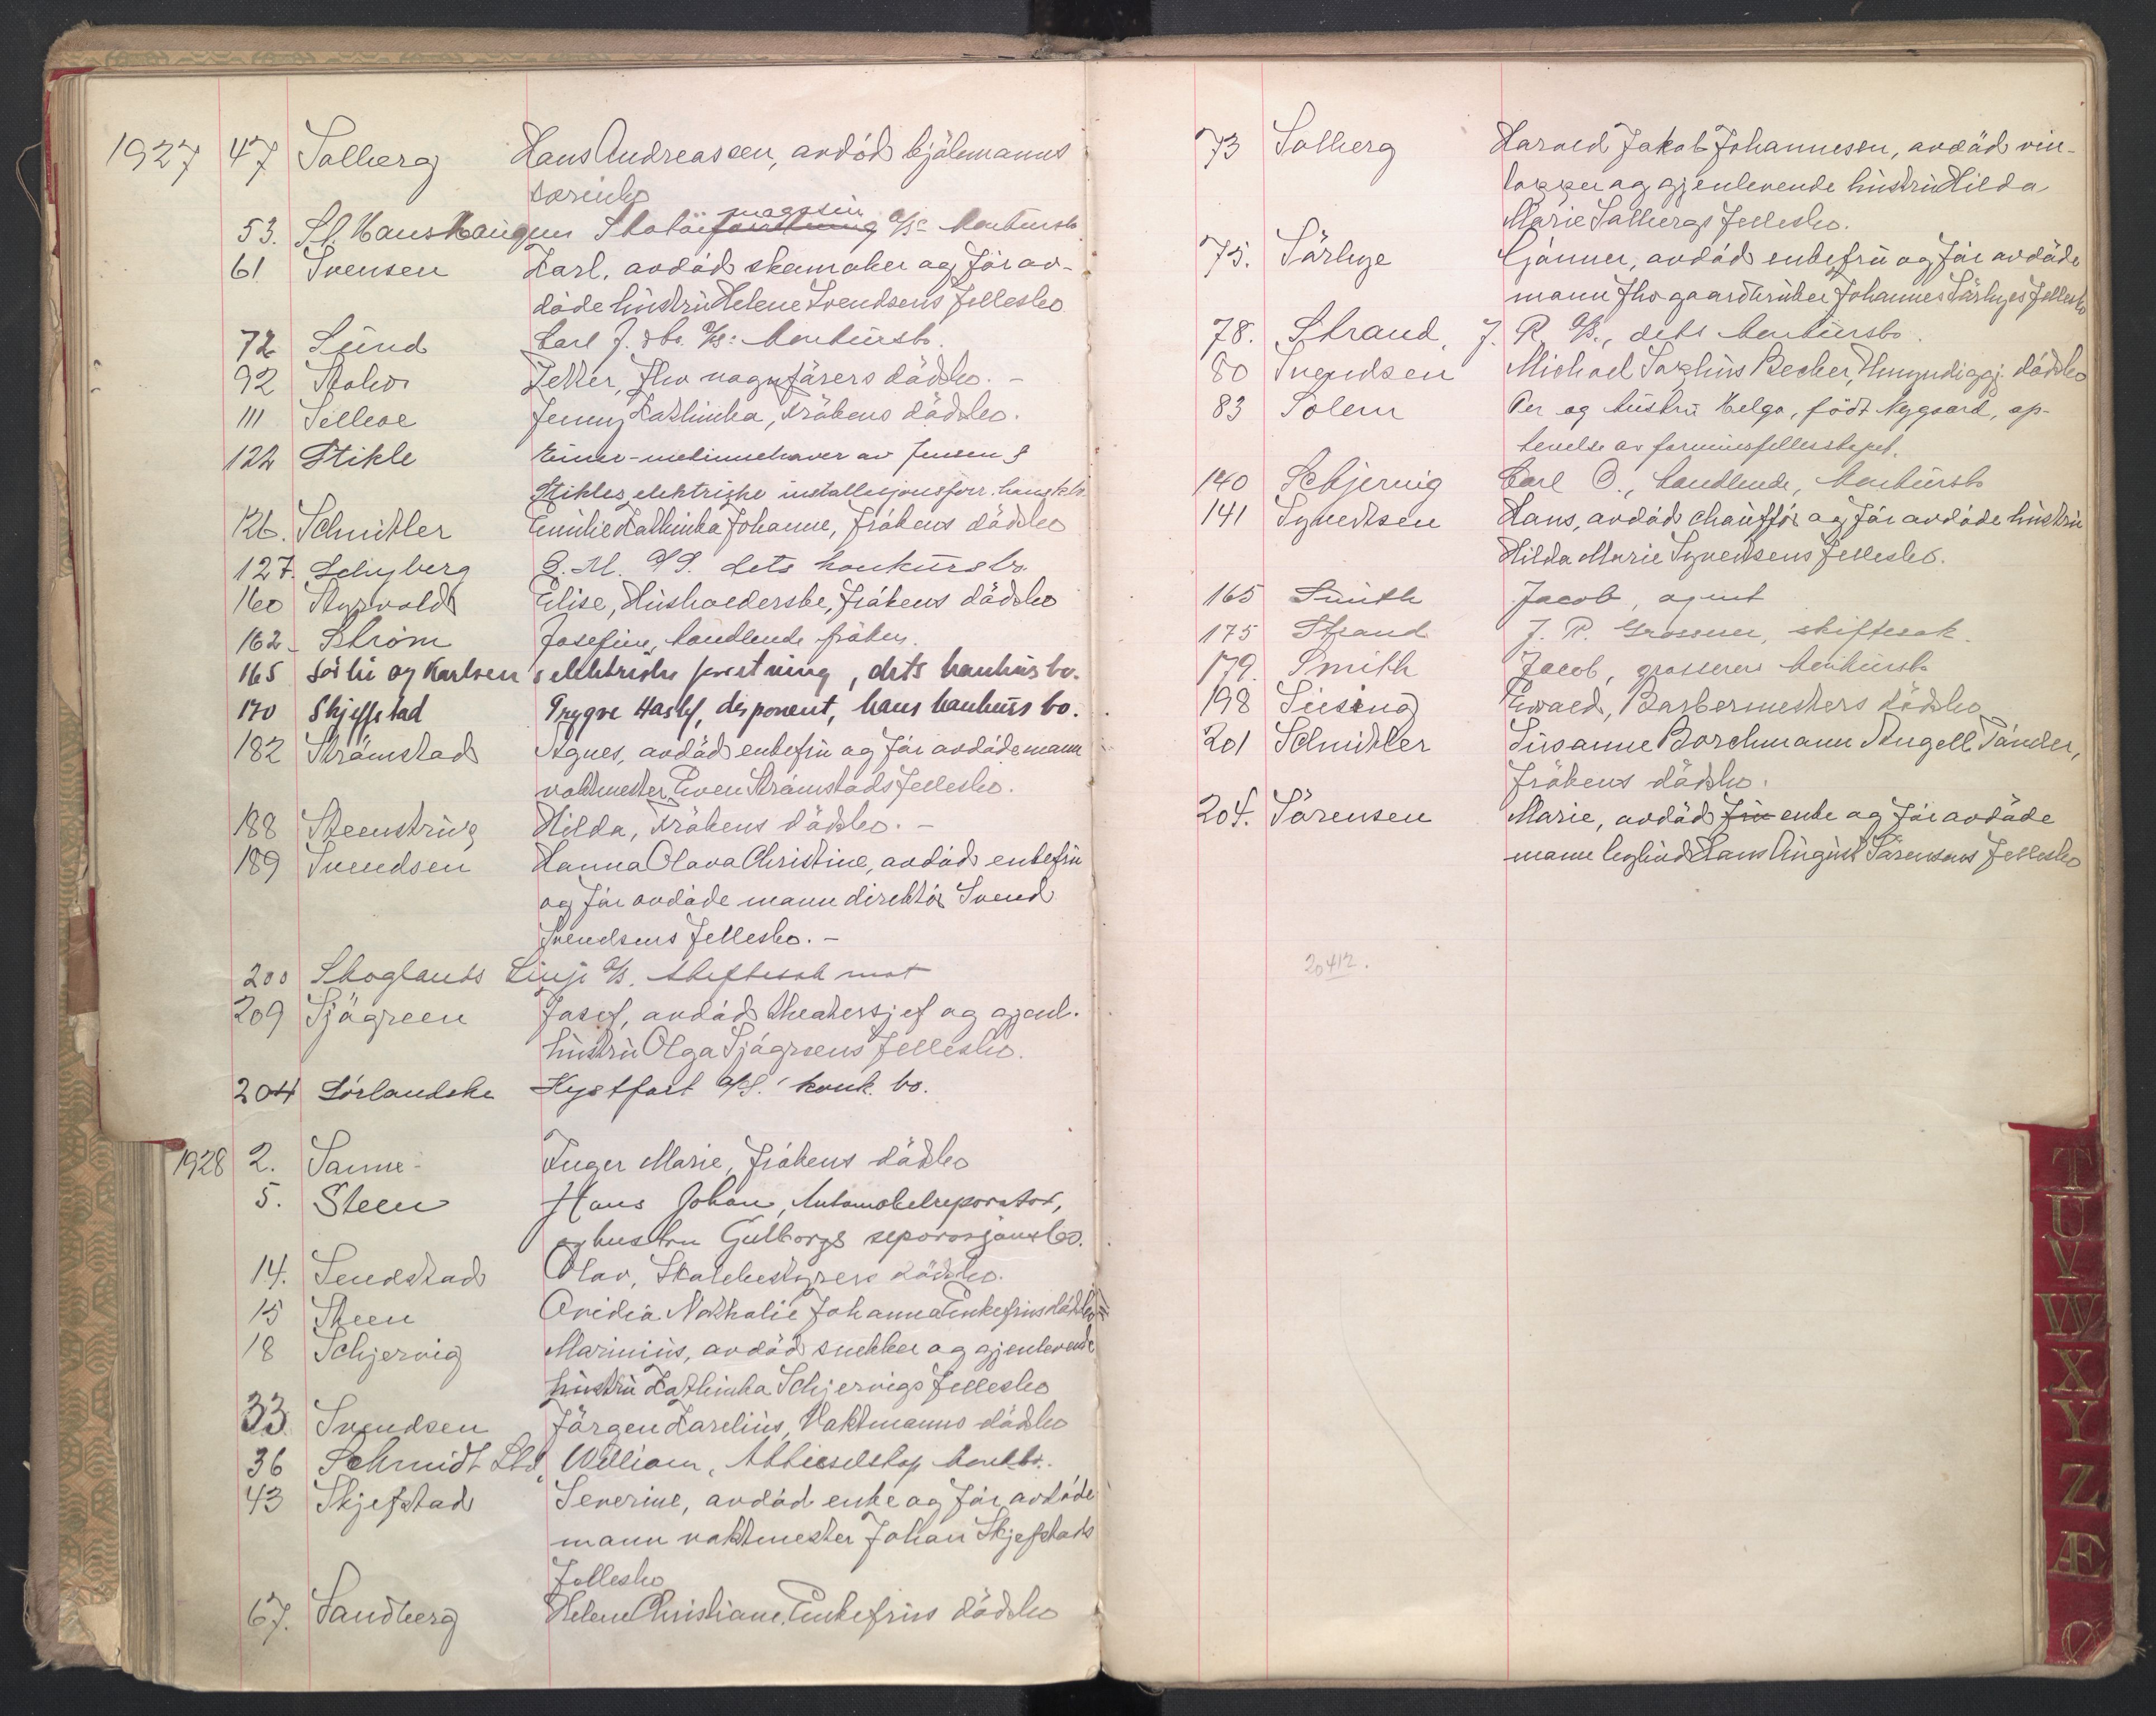 1927 47 Solberg Hans Andreassen, avdöd
særeiebo
53. St. Hanshaugen Skotöi magasin A/S konkursbo
61 Svensen Karl, avdöd skomaker og för av-
döde hustru Helene Svendsens fellesbo
72 Sund Carl J. & Co. A/S: konkursbo.
92 Petter, fhv. vognförers dödsbo. -
111 Jenny Kathinka, Frökens dödsbo.
122 Stikle Einar - medinnehaver av Jensen &
Stikles elektriske installasjonsforr. konsk.bo.
126. Schnitler Emilie Kathinka Johanne, frökens dödsbo
127. Schyberg S. M. A/S. dets konkursbo.
160 Elise, Husholderske, frökens dödsbo
162 - Ström Josefine, handlende fröken.
165 Sörli og Karlsen's elektriske forretning, dets konkursbo.
170 Skjefstad Trygve Haslef, disponent, hans konkursbo.
182 Strömstad Agnes, avdöd enkefru og för avdöde mann
vaktmester Even Strömstads fellesbo.
188 Steenstrup Hilda, Frökens dödsbo. -
189 Svendsen Hanna Olava Christine, avdöd enkefru
og för avdöde mann direktör Svend
Svendsens fellesbo. -
200 Skoglands Linje A/S. skiftesak mot
209 Sjögreen Josef, avdöd theatersjef og gjenl.
hustru Olga Sjögreens fellesbo.
204 Sörlandske Kystfart A/S.' konk. bo.
1928 2. Sanne - Inger Marie, frökens dödsbo
5. Steen Hans Johan, Automobilreparatör,
og hustru Gulborgs separasjonsbo.
14. Sendstad Olav, Skolebestyrers dödsbo.
15 Steen Ovidia Nathalie Johanna Enkefrus dödsbo =
18 Schjervig Marinius, avdöd snekker og gjenlevende
hustru Kathinka Schjervigs fellesbo
33. Svendsen Jörgen Karelius, Vaktmanns dödsbo
36 Schmidt Ltd, William, Aktieselskap konk.bo.
43 Skjefstad Severine, avdöd enke og för avdöde
mann vaktmester Johan Skjefstads
fellesbo
67. Sandberg Helene Christiane, Enkefrus dödsbo
73 Solberg Harald Jakob Johannesen, avdöd vin-
tapper og gjenlevende hustru Hilda
Marie Solbergs fellesbo.
75. Sörlye Gunner, avdöd enkefru og för avdöde
mann fhv gaardbruker Johannes Sörlyes fellesbo
78. Strand, J. R. A/S., dets konkursbo.
80 Svendsen Michael Sophus Becher, dödsbo
83 Solem Per og hustru Helga, födt Nygaard, op-
hevelse av formuesfellesskapet.
140 Schjervig Carl O., handlende, konkursbo
141 Syvertsen Hans, avdöd chaufför og för avdöde hustru
Hilda Marie Syvertsens fellesbo.
165 Smith Jacob, agent
175 Strand J. R. Grosserer, skiftesak.
179. Smith Jacob, grosserers konkursbo
198 Ewald, Barbermesters dödsbo
201 Schnitler Susanne Borchmann Angell Tönder,
frökens dödsbo.
204. Sörensen Marie, avdöd fru enke og för avdöde
mann Hans August Sörensens fellesbo
20412.
T
U
V
W
X
Y
Z
Æ
Ø